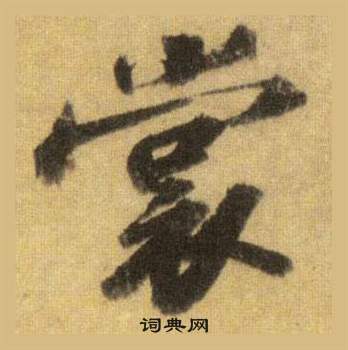 裳
词典网